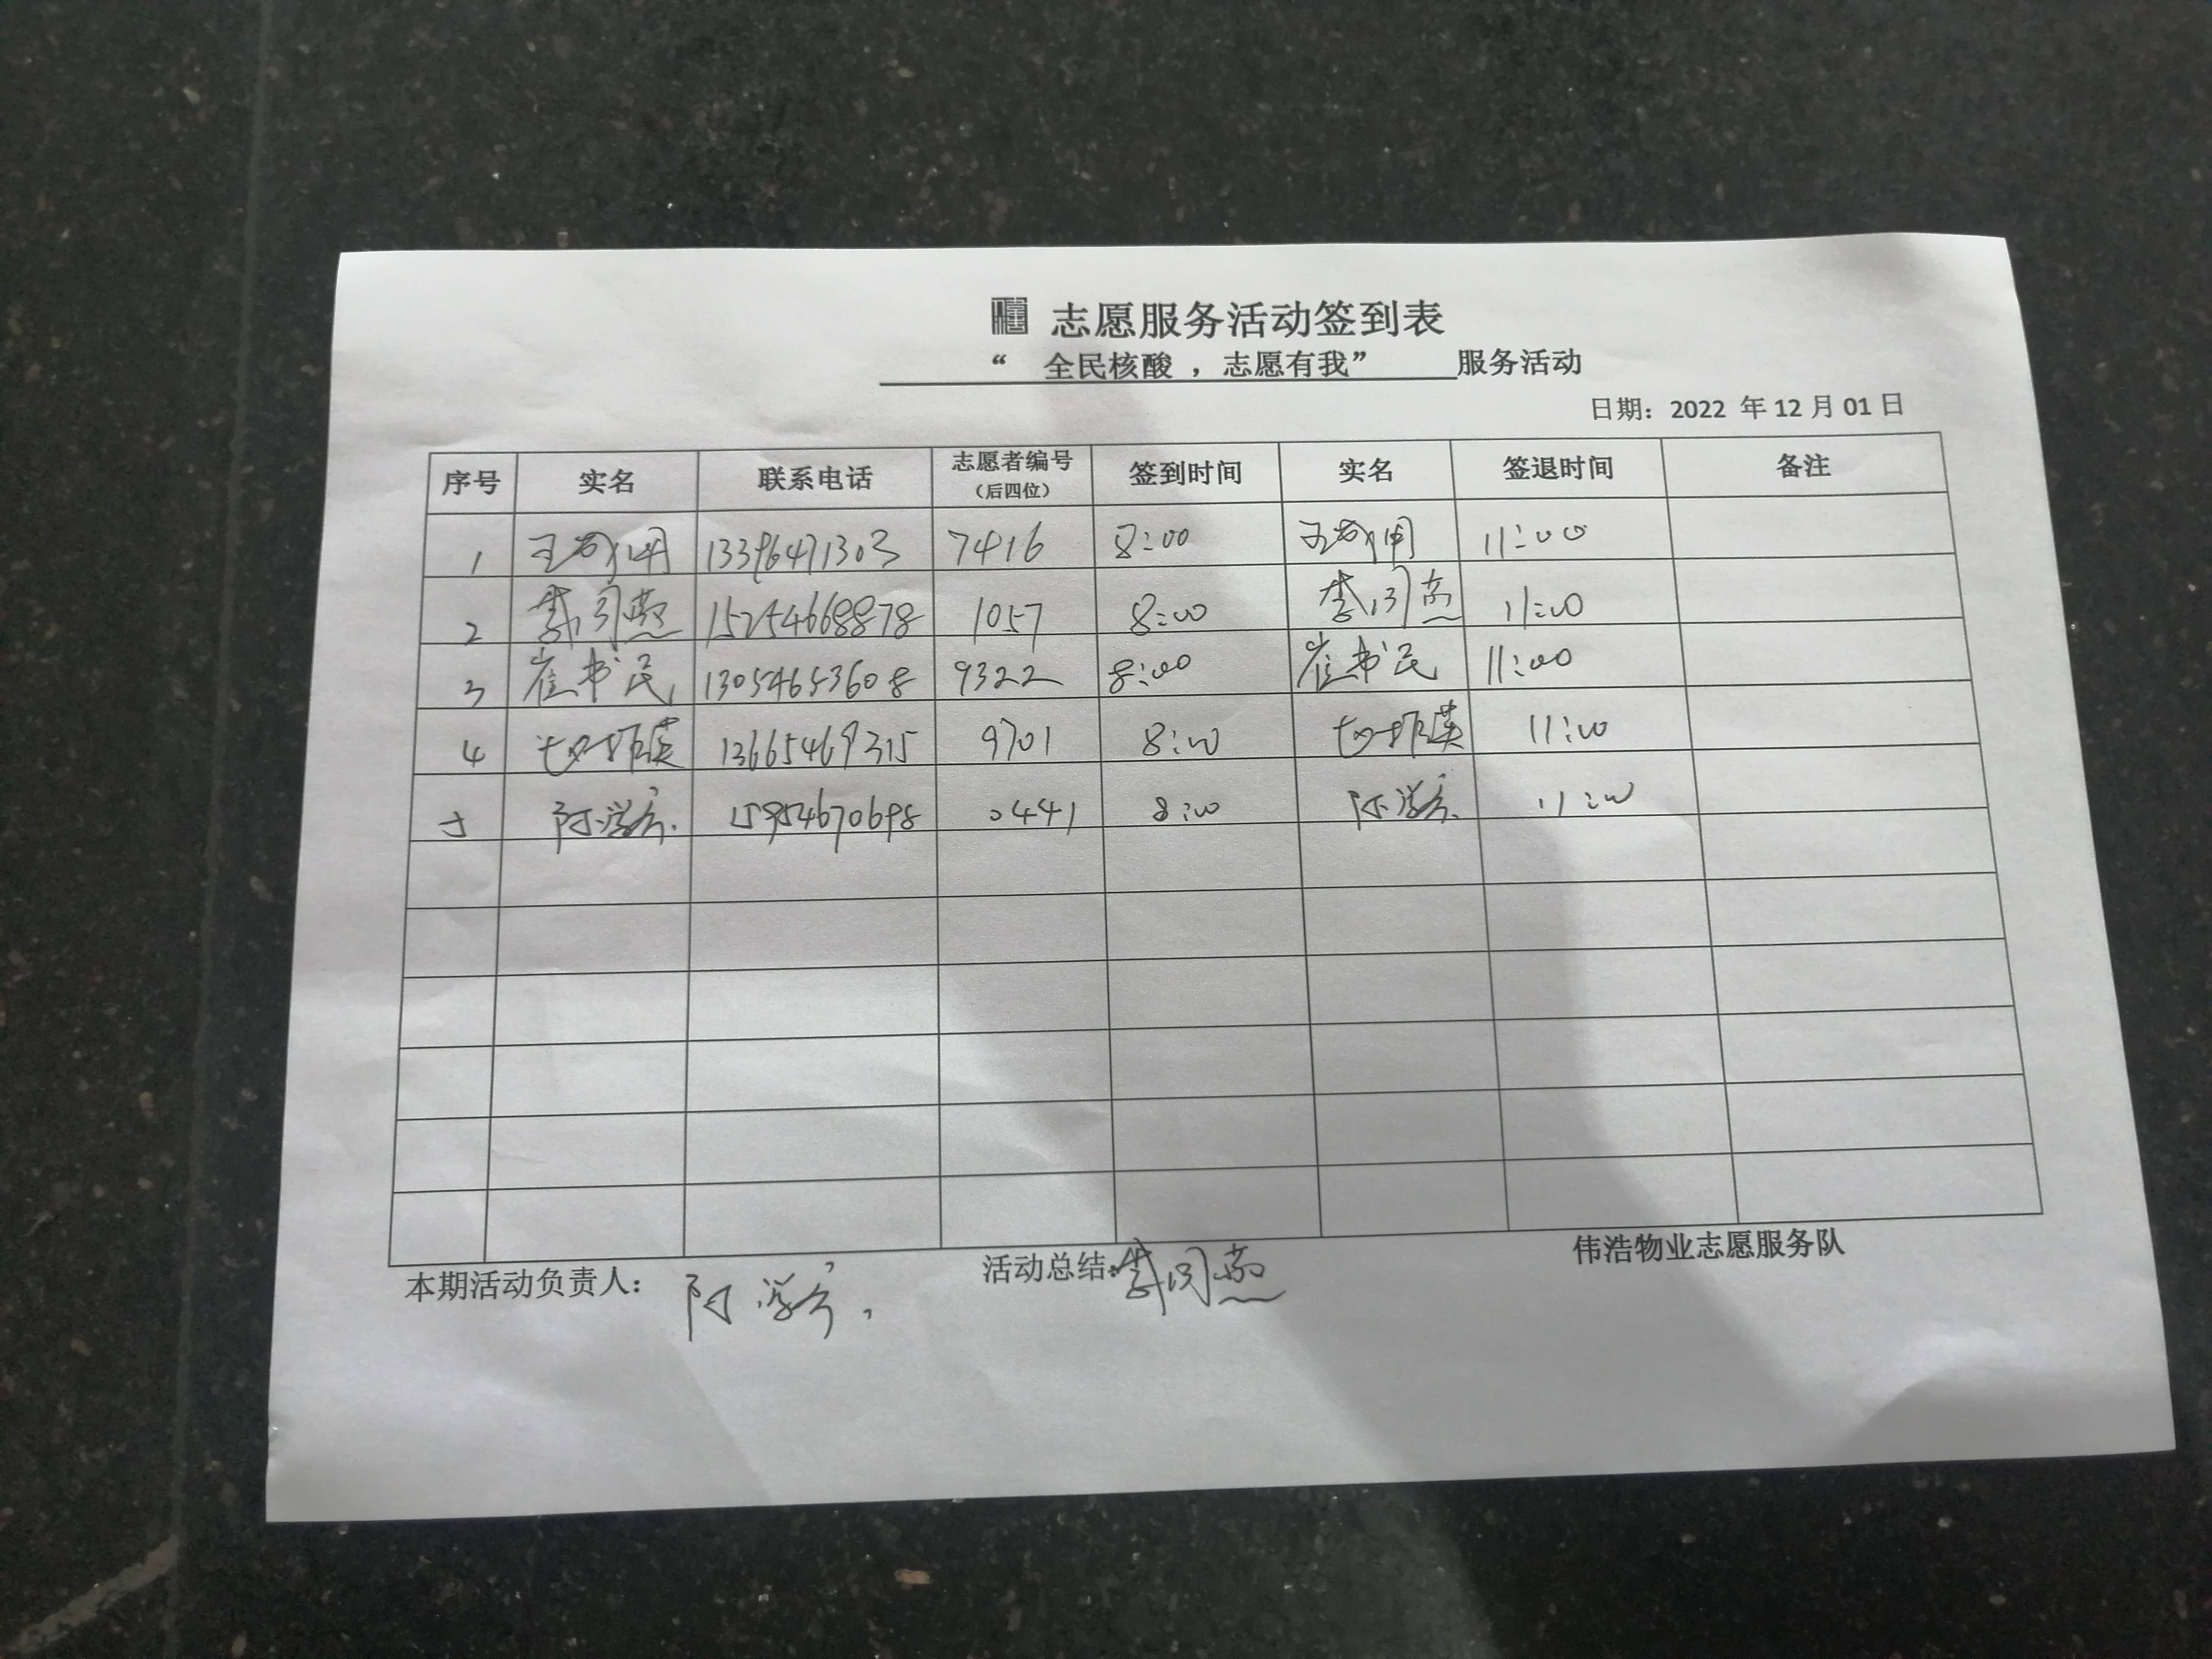 志愿服务活动签到表
“ 全民核酸 ，志愿有我” 服务活动
日期：2022 年 12 月 01 日
序号 实名 联系电话 志愿者编号（后四位） 签到时间 实名 签退时间 备注
1 13396471303 7416 8:00 11:00
2 15254668878 1057 8:00 11:00
3 崔书民 13054653608 9322 8:00 崔书民 11:00
4 13665469315 9701 8:00 11:00
5 15954670698 0441 8:00 11:00
本期活动负责人： 活动总结： 伟浩物业志愿服务队